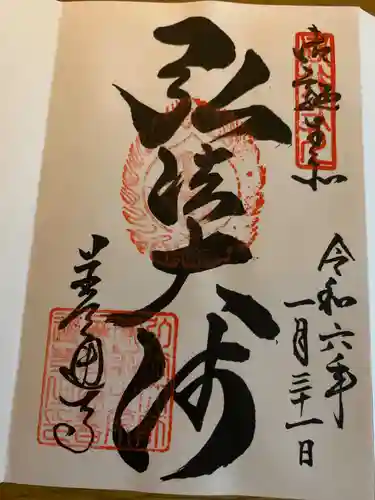 御誕生所
令和六年
一月三十一日
弘法大師
善通寺